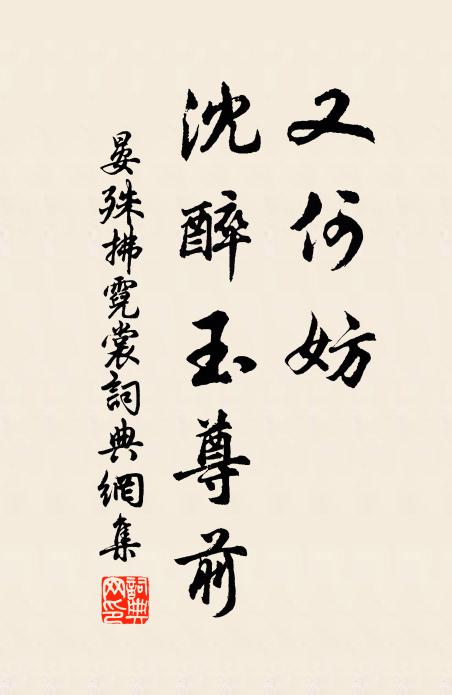 又何妨
沈醉玉尊前
晏殊拂霓裳詞典網集
詞典网印